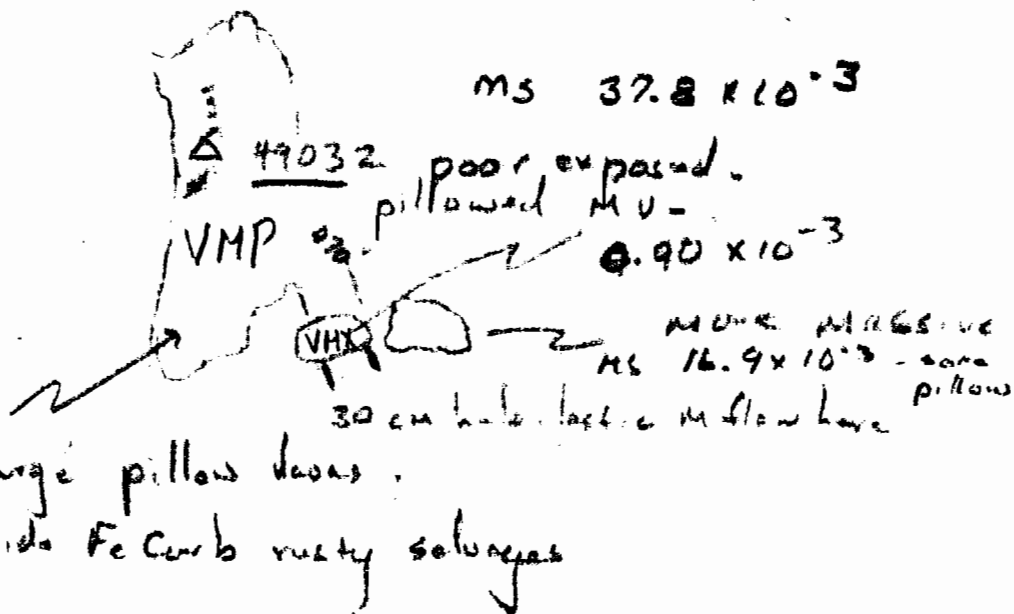 MS 37.8 x 10-3
49032 poor exposed.
pillowed MV -
VMP
0.90 x 10-3
VHX
MORE MASSIVE
MS 16.9 x 10-3 - some
pillows
30 cm M flow here
pillow
Fe Carb rusty selvages